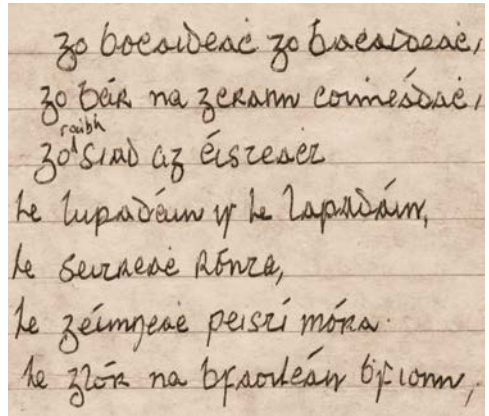 go bocaideaċ go bacaideaċ,
go bárr na gcrann coiméadaċ,
go raibh siad ag éisteaċt
le lupadáin ⁊ le lapadáin,
le seitreaċ rónta,
le géimneaċ peistí móra.
le glór na bfaoileán bfionn,